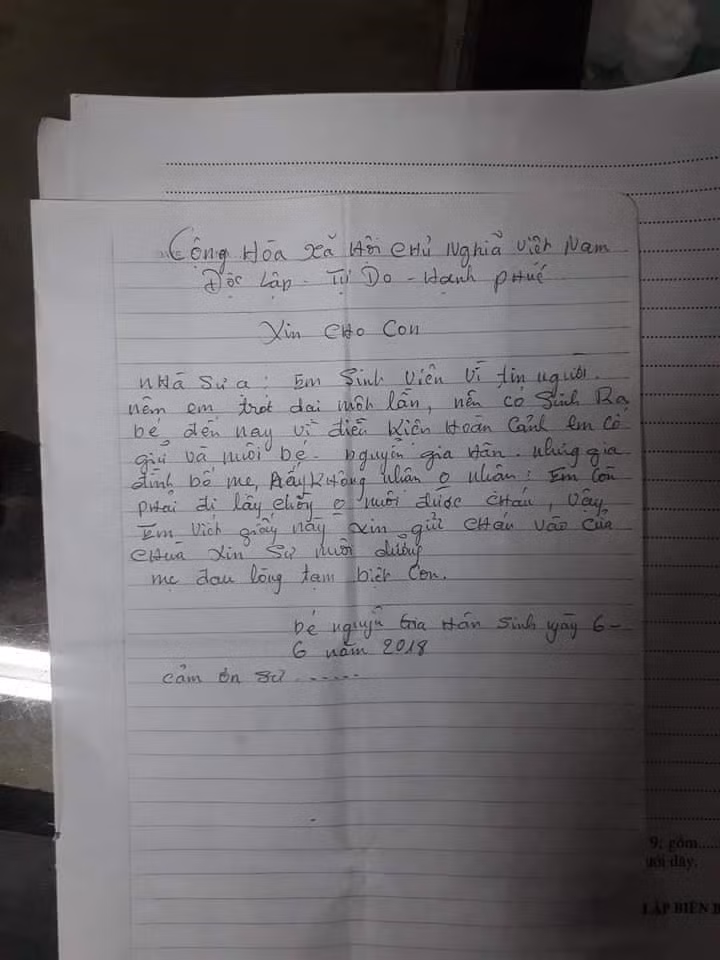 Cộng Hòa Xã Hôi CHủ Nghiã Việt Nam
Độc Lập - Tự Do - Hạnh PHúc
Xin CHo Con
NHà Sư ạ: Em Sinh Viên Vì tin người.
nêm em trót dai môt lần, nên có Sinh Ra
bé đến nay vì điều Kiên Hoàn Cảnh em Cố
giử và nuôi bé. nguyễn gia Hân. nhưng gia
đình bố mẹ, Aấy Không nhân o nhân: Em Còn
PHải đi lấy chồng o nuôi được CHáu, Vậy
Em Vích giấy này Xin gửi CHáu Vào Của
CHuà Xin Sư nuôi dưỡng
mẹ đau lòng tạm biệt Con.
bé nguyễn Gia Hân Sinh gày 6-
6 năm 2018
cảm ơn Sư .....
9; gồm....
dưới đây.
LẬP BIÊN B